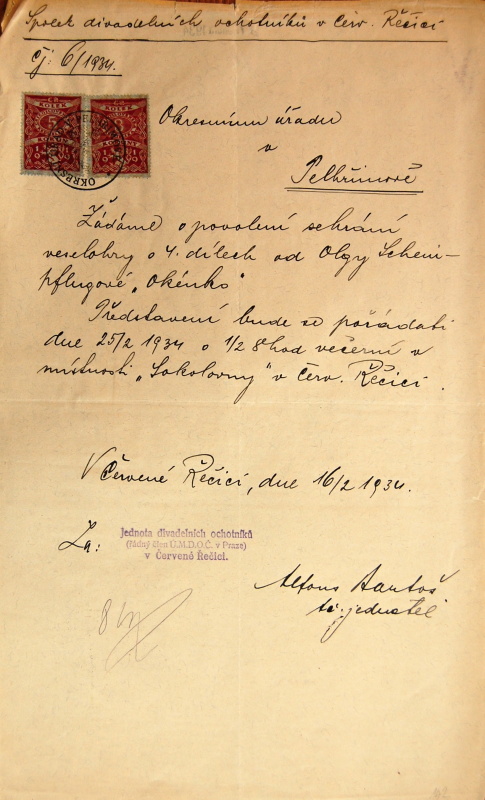 Spolek divadelních ochotníků v Červ. Řečici
čj: 6/1934.
Okresnímu úřadu
v
Pelhřimově
Žádáme o povolení sehrání
veselohry o 4. dílech od Olgy Schein-
pflugové „Okénko"
Představení bude se pořádati
dne 25/2 1934 o 1/2 8 hod večerní v
místnosti „Sokolovny" v Červ. Řečici.
V Červené Řečici, dne 16/2 1934.
Za:
Jednota divadelních ochotníků
(řádný člen Ú.M.D.O.Č. v Praze)
v Červené Řečici.
Alfons Bartoš
jednatel